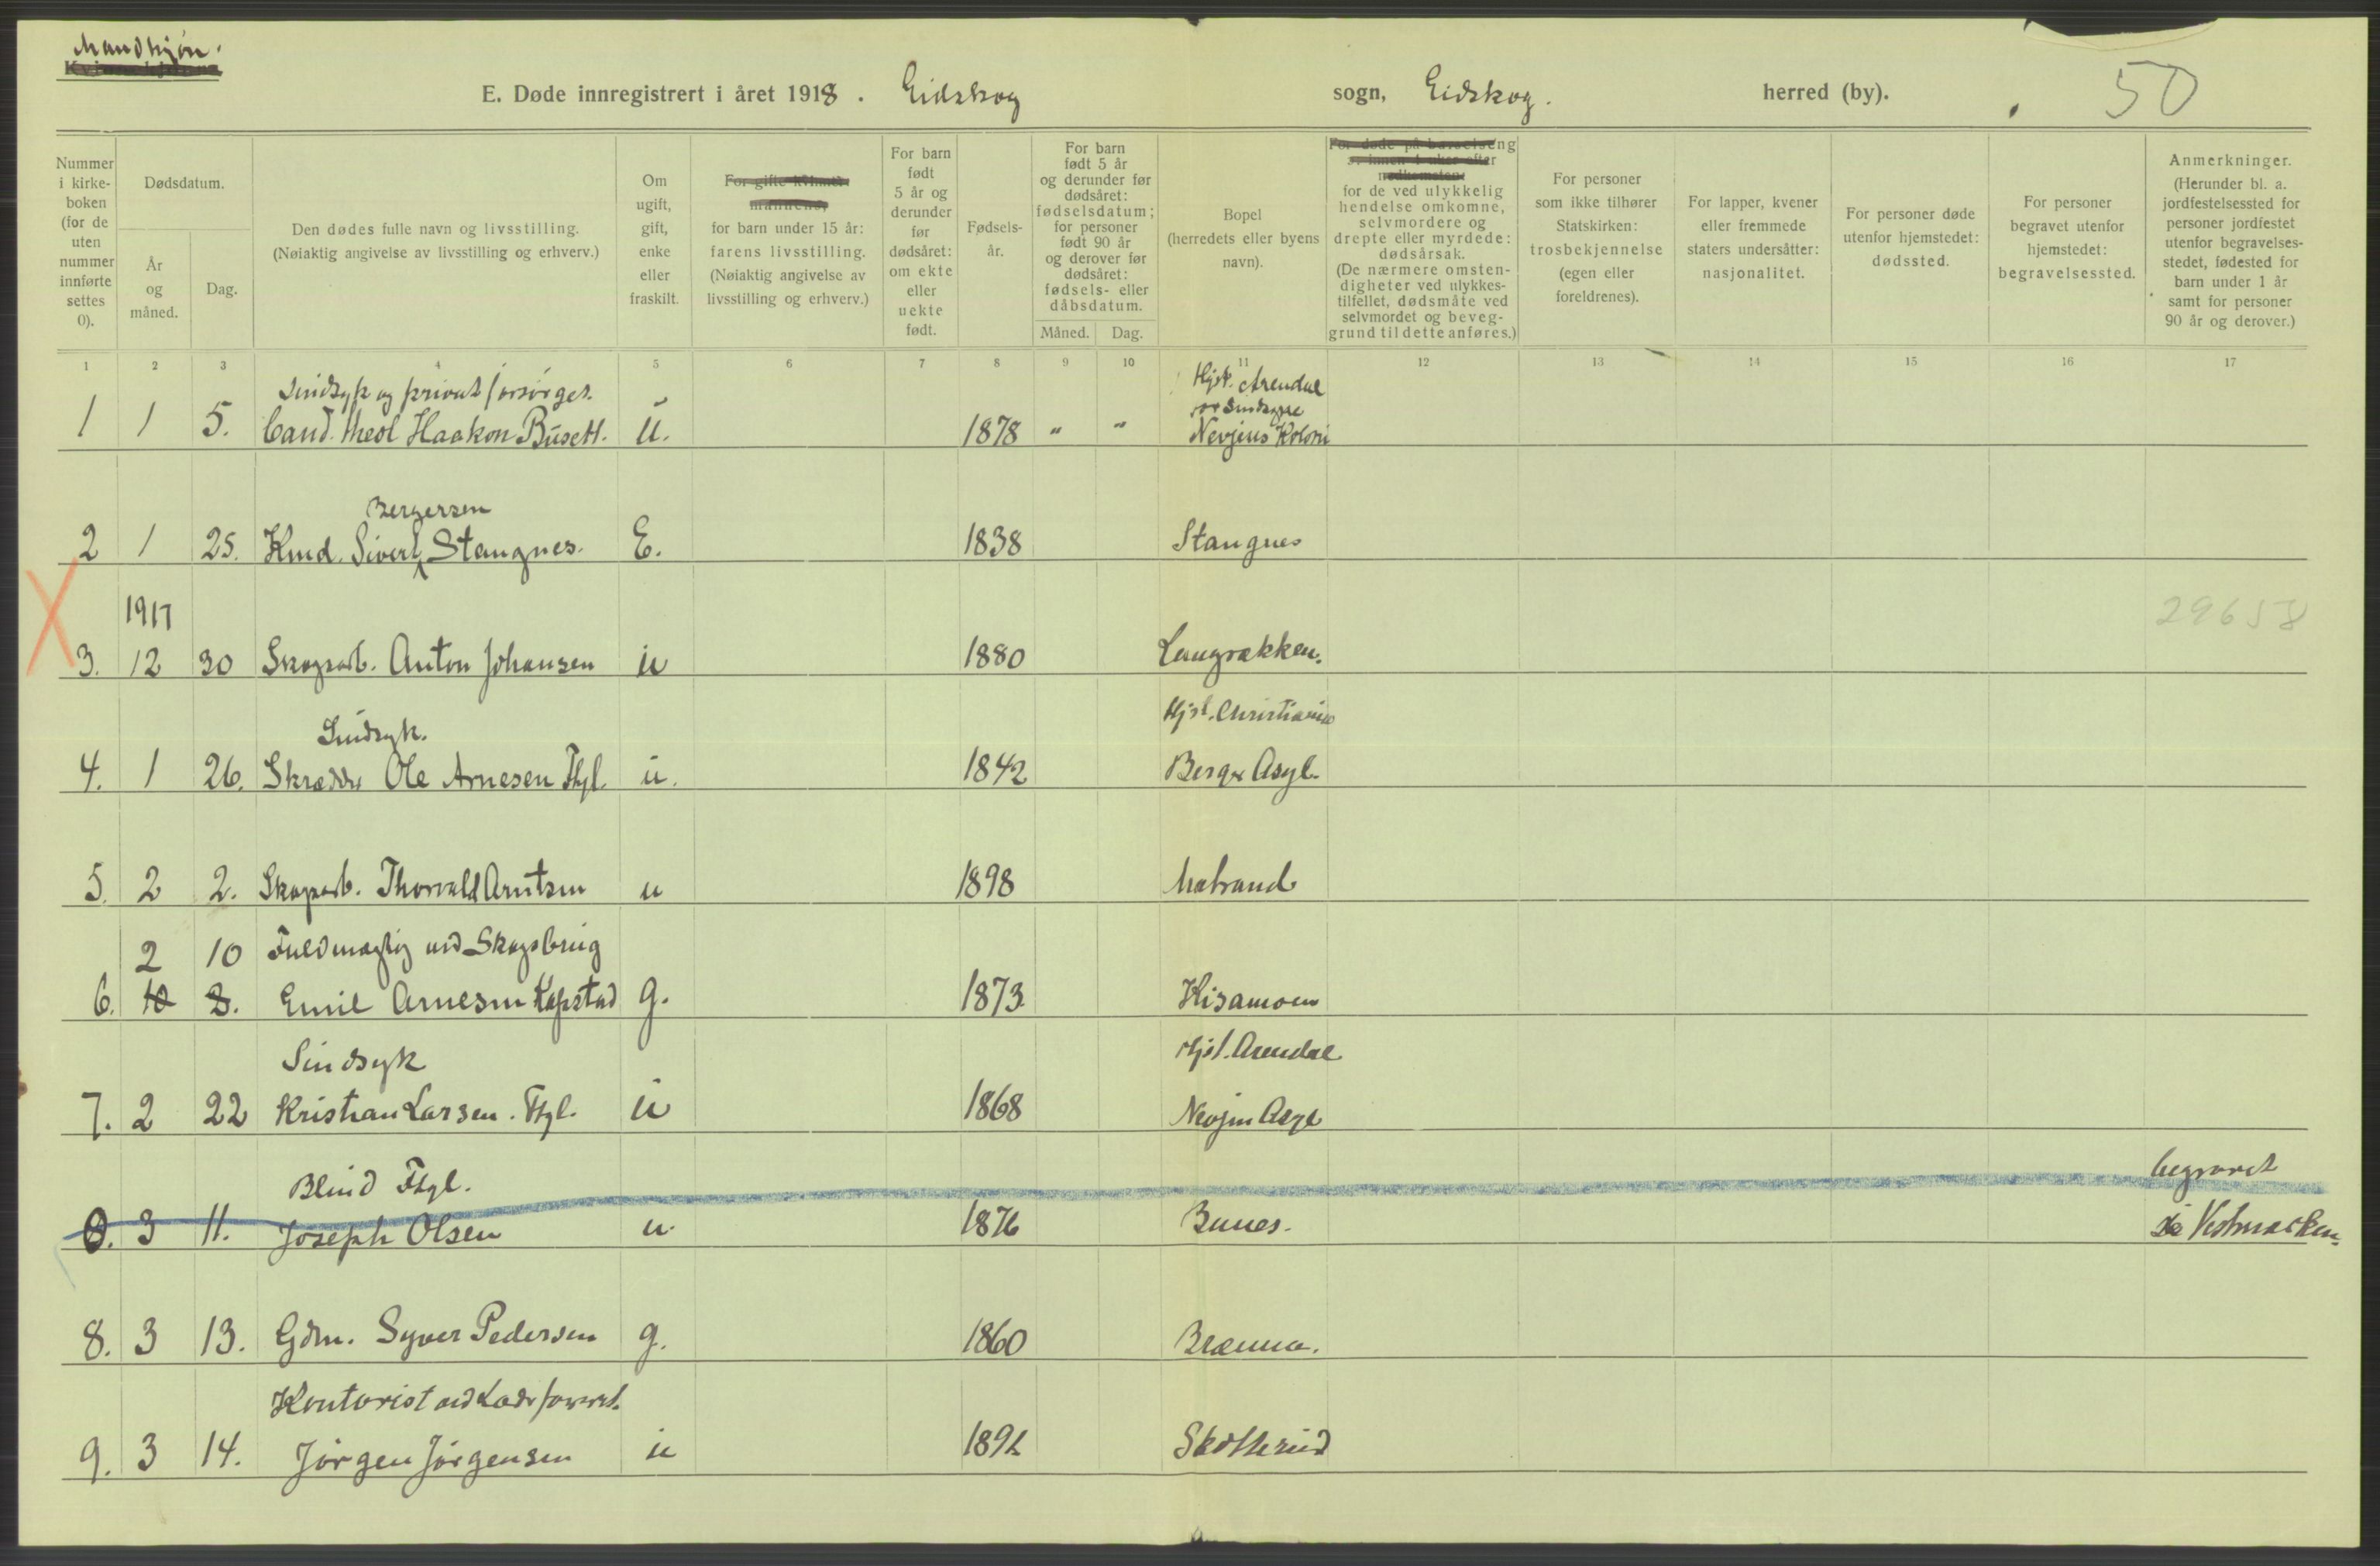 Mandkjøn.
E. Døde innregistrert i året 1918. Eidskog sogn, Eidskog. herred (by). 50
Nummer i kirke- boken (for de uten nummer innførte settes 0).
Dødsdatum.
År og måned.
Dag.
Den dødes fulle navn og livsstilling.
(Nøiaktig angivelse av livsstilling og erhverv.)
Om ugift, gift, enke eller fraskilt.
For gifte kvinner: mannens,
for barn under 15 år: farens livsstilling.
(Nøiaktig angivelse av livsstilling og erhverv.)
For barn født 5 år og derunder før dødsåret: om ekte eller uekte født.
Fødsels- år.
For barn født 5 år og derunder før dødsåret: fødselsdatum; for personer født 90 år og derover før dødsåret: fødsels- eller dåbsdatum.
Måned. Dag.
Bopel (herredets eller byens navn).
for de ved ulykkelig hendelse omkomne, selvmordere og drepte eller myrdede: dødsårsak.
(De nærmere omsten- digheter ved ulykkes- tilfellet, dødsmåte ved selvmordet og beveg- grund til dette anføres.)
For personer som ikke tilhører Statskirken: trosbekjennelse (egen eller foreldrenes).
For lapper, kvener eller fremmede staters undersåtter: nasjonalitet.
For personer døde utenfor hjemstedet: dødssted.
For personer begravet utenfor hjemstedet: begravelsessted.
Anmerkninger.
(Herunder bl. a. jordfestelsessted for personer jordfestet utenfor begravelses- stedet, fødested for barn under 1 år samt for personer 90 år og derover.)
1 2 3 4 5 6 7 8 9 10 11 12 13 14 15 16 17
Sindsyk og privat forsørget. Hjst. Arendal
Sindsyke
1 1 5. Cand. theol Haakon Busett. u. 1878 " " Nevjens Koloni
Bergersen
2 1 25. Kmd. Sivert Stangnes. E. 1838 Stangnes
1917 29658
3. 12 30 Skogsarb. Anton Johansen u 1880 Langrækken.
Sindsyk. Hjst. Christiania
4. 1 26. Skrædder Ole Arnesen Ftgl. u. 1842 Bergs Asyl.
5. 2 2. Skogsarb. Thorvald Arntsen u 1898 Matrand
2 10 Fuldmægtig ved Skogsbrug
6. 10 2. Emil Arnesen Kapstad g. 1873 Kisamoen
Sindsyk Hjst. Arendal
7. 2 22 Kristian Larsen. Ftgl. u 1868 Nevjen Asyl
Blind Ftgl. begravet
0. 3 11. Joseph Olsen u. 1876 Bunes. i Vestmarken.
8. 3 13. Gdm. Syver Pedersen g. 1860 Brænna.
Kontorist ved
9. 3 14. Jørgen Jørgensen u 1892 Skotterud